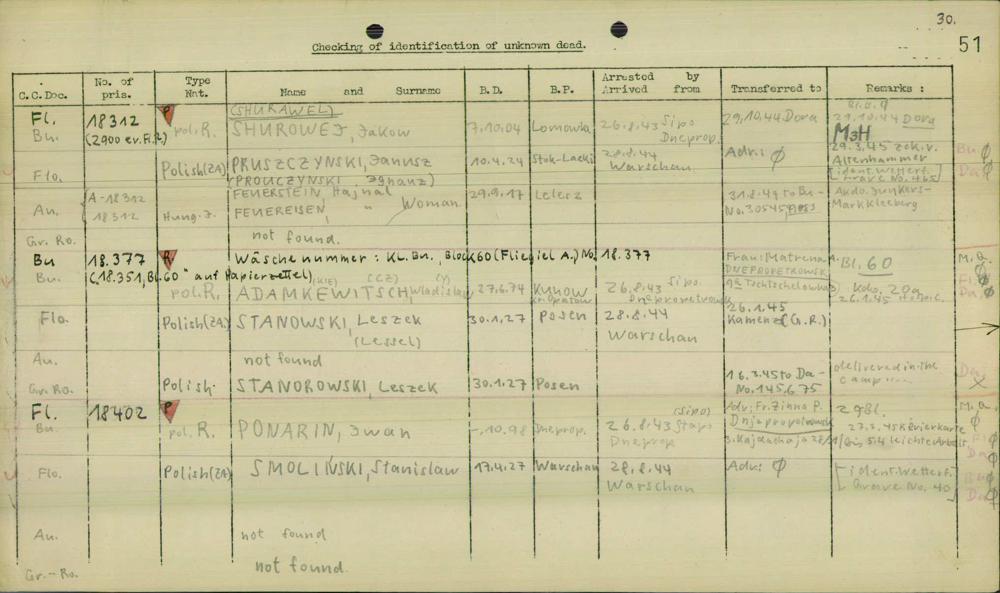 30.
51
Checking of identification of unknown dead.
C.C.Doc. No. of pris. Type Nat. Name and Surname B.D. B.P. Arrested by Arrived from Transferred to Remarks :
(SHURAWEL)
Fl. 18312 P 29.10.44 Dora
Bu. (2900 ev. Fl.R.) pol. R. SHUROWEJ, Jakow 7.10.04 Lomowka 26.8.43 Sipo Dneprop. 29.10.44 Dora
MzH
Flo. Polish(ZA) PRUSZCZYNSKI, Janusz 10.4.24 Stok-Lacki 28.8.44 Warschau Adr.: Ø 29.3.45 zck.v. Altenhammer Bu. Ø
(PROUCZYNSKI Ignanz) [ident. Wetterf. Grave No. 465] Da Ø
Au. A-18312 FEUERSTEIN Hajnal 29.9.17 Lelesz 31.8.44 to Bu- Akdo. Junkers-
18312 Hung. J. FEUEREISEN, " Woman No. 30545, Markkleeberg
Gr. Ro. not found.
Bu 18.377 R. Wäschenummer : KL. Bu., Block 60 (Fliegiel A.) No. 18.377 Frau: Matrena A. Bl. 60 M.a.
Bu. (18.351, Bl. 60 " auf Papierzettel) (KIE) (CZ) (Y) DNEPROPETROWSK
pol. R. ADAMKEWITSCH, Wladislaw 27.6.74 Kunow 26.8.43 Sipo Dnepropetrowsk Kdo. 20a
26.1.45
Flo. Polish(ZA) STANOWSKI, Leszek 30.1.27 Posen 28.8.44 Warschau 26.1.45 Kamenz (G.R.)
(Lessel)
Au. not found
Gr. Ro. Polish. STANOROWSKI, Leszek 30.1.27 Posen 16.3.45 to Da- No. 145.675 delivered in the camp .... Da. X
Fl. 18402 P (Sipo) Adr: Fr. Zinna P. 29 Bl. M.a.
Bu. pol. R. PONARIN, Iwan -.10.98 Dneprop. 26.8.43 Stapo Dneprop Dnjepropetrowsk 27.3.45 Revierkarte Ø
5.4 leichte Arbeit Da Ø
Flo. Polish(ZA) SMOLIŃSKI, Stanislaw 17.4.27 Warschau 28.8.44 Warschau Adr: Ø [ident. Wetterf. Grave No. 40] Bu Ø
Da Ø
Au. not found
Gr.-Ro. not found.